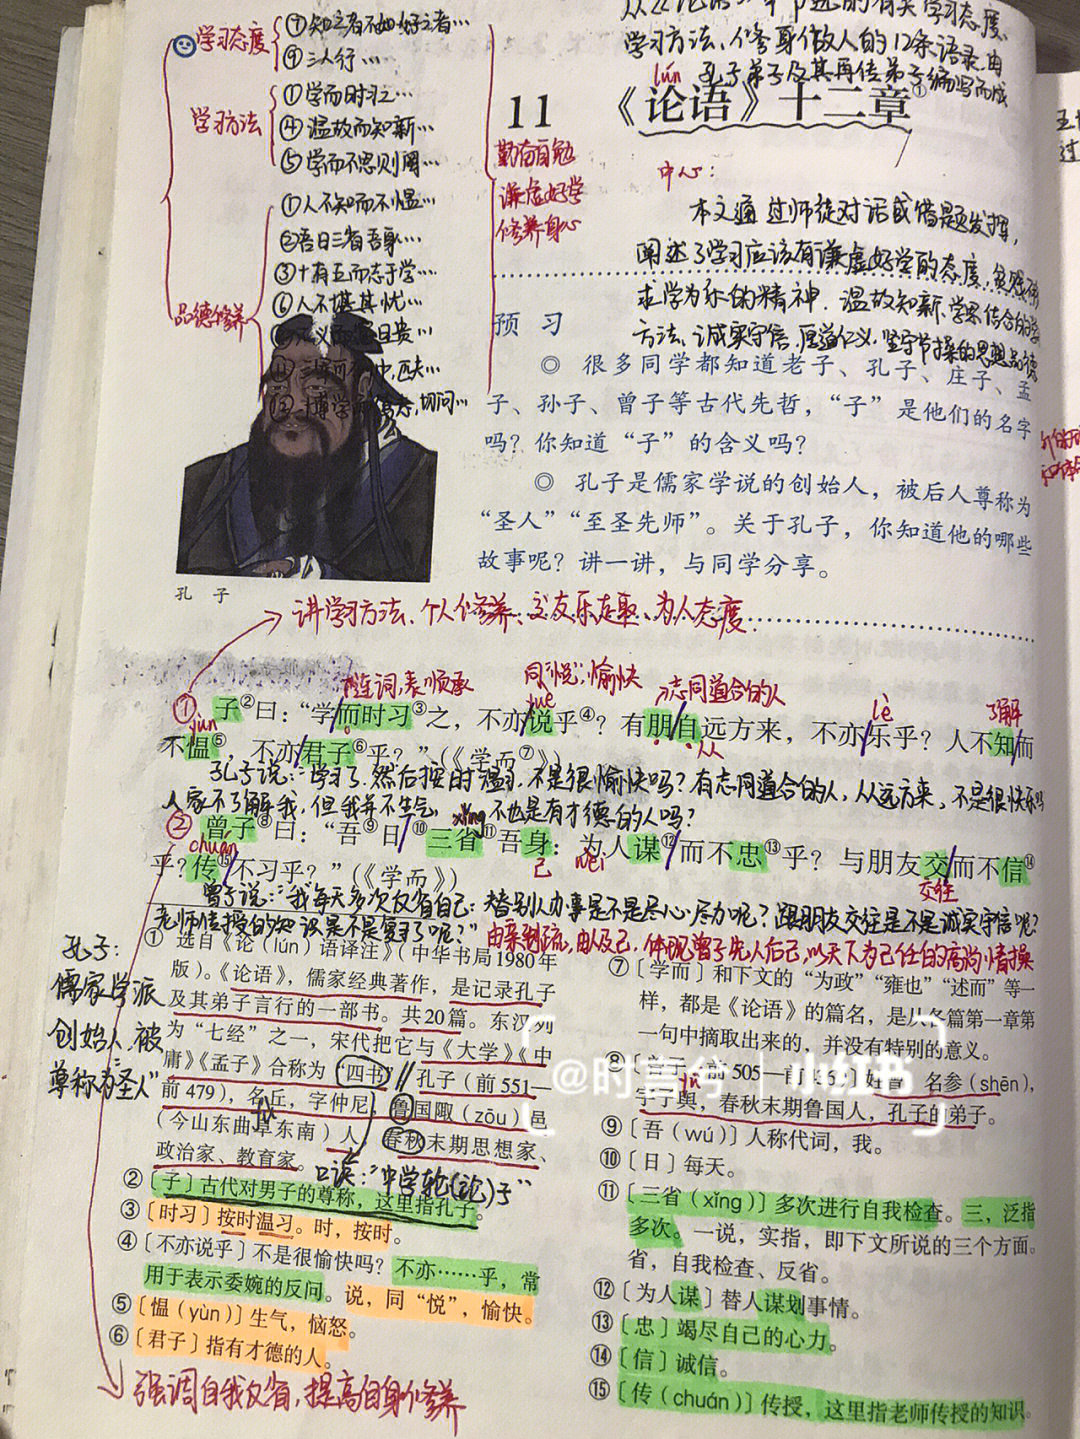 学习态度
⑦知之者不如好之者…
⑨三人行…
学习方法
①学而时习之…
④温故而知新…
⑤学而不思则罔…
品德修养
①人不知而不愠…
②吾日三省吾身…
③十有五而志于学…
⑥人不堪其忧…
勤奋自勉
谦虚好学
修养身心
学习方法、修身做人的12条语录,由
孔子弟子及其再传弟子编写而成
lún
11 《论语》十二章①
中心:
本文通过师徒对话或借题发挥,
阐述了学习应该有谦虚好学的态度,
求学为乐的精神.温故知新、学思结合的
方法、诚实守信、坚守节操的思想品德
预 习
◎ 很多同学都知道老子、孔子、庄子、孟
子、孙子、曾子等古代先哲,“子”是他们的名字
吗?你知道“子”的含义吗?
◎ 孔子是儒家学说的创始人,被后人尊称为
“圣人”“至圣先师”。关于孔子,你知道他的哪些
故事呢?讲一讲,与同学分享。
孔 子
讲学习方法、个人修养、交友乐趣、为人态度.
连词,表顺承
同“悦”,愉快
yuè
志同道合的人
lè
了解
①子②曰:“学/而时习③之,不亦/说乎④?有朋/自远方来,不亦/乐乎?人不知/而
yùn
从
不愠⑤,不亦/君子⑥乎?”(《学而⑦》)
孔子说:“学习了,然后按时温习,不是很愉快吗?有志同道合的人,从远方来,不是很快乐吗
人家不了解我,但我并不生气,不也是有才德的人吗?
xǐng
②曾子⑧曰:“吾⑨日/⑩三省⑪吾身:为人谋⑫/而不忠⑬乎?与朋友交/而不信⑭
chuán
己
wèi
交往
乎?传⑮/不习乎?”(《学而》)
曾子说:“我每天多次反省自己:替别人办事是不是尽心尽力呢?跟朋友交往是不是诚实守信呢?
老师传授的知识是不是复习了呢?”
体现曾子先人后己,以天下为己任的高尚情操
孔子:
儒家学派
创始人,被
尊称为“圣人”
① 选自《论(lún)语译注》(中华书局1980年
版)。《论语》,儒家经典著作,是记录孔子
及其弟子言行的一部书。共20篇。东汉列
为“七经”之一,宋代把它与《大学》《中
庸》《孟子》合称为“四书”。孔子(前551—
前479),名丘,字仲尼,鲁国陬(zōu)邑
(今山东曲阜东南)人,春秋末期思想家、
政治家、教育家。
口误:“中学轮(论)子”
②〔子〕古代对男子的尊称,这里指孔子。
③〔时习〕按时温习。时,按时。
④〔不亦说乎〕不是很愉快吗?不亦……乎,常
用于表示委婉的反问。说,同“悦”,愉快。
⑤〔愠(yùn)〕生气,恼怒。
⑥〔君子〕指有才德的人。
强调自我反省,提高自身修养
⑦〔学而〕和下文的“为政”“雍也”“述而”等一
样,都是《论语》的篇名,是从各篇第一章第
一句中摘取出来的,并没有特别的意义。
⑧〔曾子〕(前505—前436),姓曾,名参(shēn),
yú
字子舆,春秋末期鲁国人,孔子的弟子。
⑨〔吾(wú)〕人称代词,我。
⑩〔日〕每天。
⑪〔三省(xǐng)〕多次进行自我检查。三,泛指
多次。一说,实指,即下文所说的三个方面。
省,自我检查、反省。
⑫〔为人谋〕替人谋划事情。
⑬〔忠〕竭尽自己的心力。
⑭〔信〕诚信。
⑮〔传(chuán)〕传授,这里指老师传授的知识。
@时言兮 | 小红书